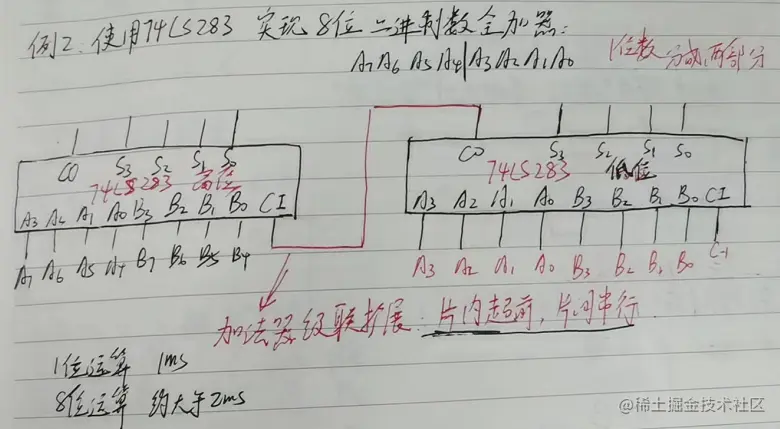 例2.使用74LS283 实现8位二进制数全加器:
A7 A6 A5 A4|A3 A2 A1 A0
位数分成两部分
CO S3 S2 S1 S0
74LS283 高位
A3 A2 A1 A0 B3 B2 B1 B0 CI
A7 A6 A5 A4 B7 B6 B5 B4
CO S3 S2 S1 S0
74LS283 低位
A3 A2 A1 A0 B3 B2 B1 B0 CI
A3 A2 A1 A0 B3 B2 B1 B0 C-1
加法器级联扩展:片内超前,片间串行
1位运算 1ms
8位运算 约大于2ms
@稀土掘金技术社区